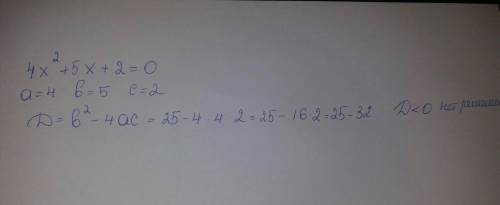 4x²+5x+2=0
a=4 b=5 c=2
D=b²-4ac=25-4·4 2=25-16·2=25-32 D<0 нет